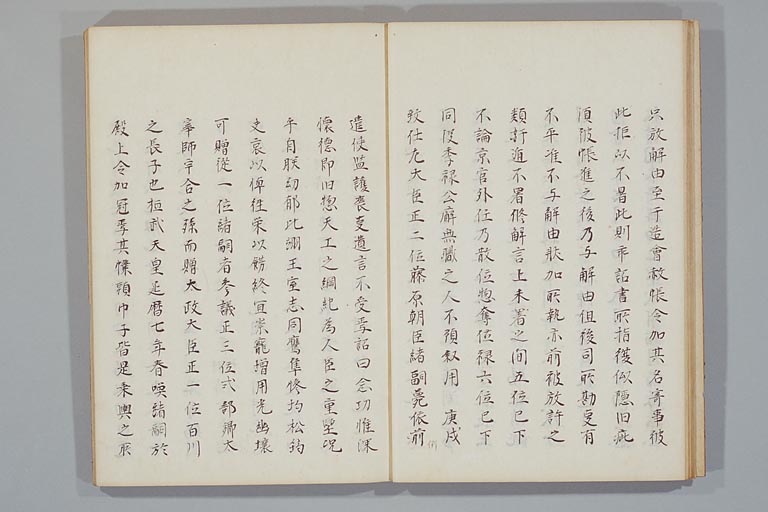 只放解由至于造會赦帳令加其名寄事彼
此拒以不署此則乖詔書所指從似隠旧疵
須彼帳進之後乃与解由但後司所勘更有
不平准不与解由状加所執亦前被放許之
類拆逍不署修解言上未著之間五位已下
不論京官外任乃散位惣奪位禄六位已下
同没季禄公廨無職之人不預叙用　庚戌
致仕左大臣正二位藤原朝臣緒嗣薨依前
遣使監護喪事遺言不受矣詔曰念功惟深
懐徳即旧惣天工之綱紀為人臣之重望況
乎自朕幼郁比翊王室志同鷹隼修均松筠
史哀以俾往栄以餝終宜崇寵増用光幽壤
可贈従一位緒嗣者参議正三位式部卿大
宰帥宇合之孫而贈太政大臣正一位百川
之長子也桓武天皇延暦七年春喚緒嗣於
殿上令加冠焉其幞頭巾子皆是乗輿之所